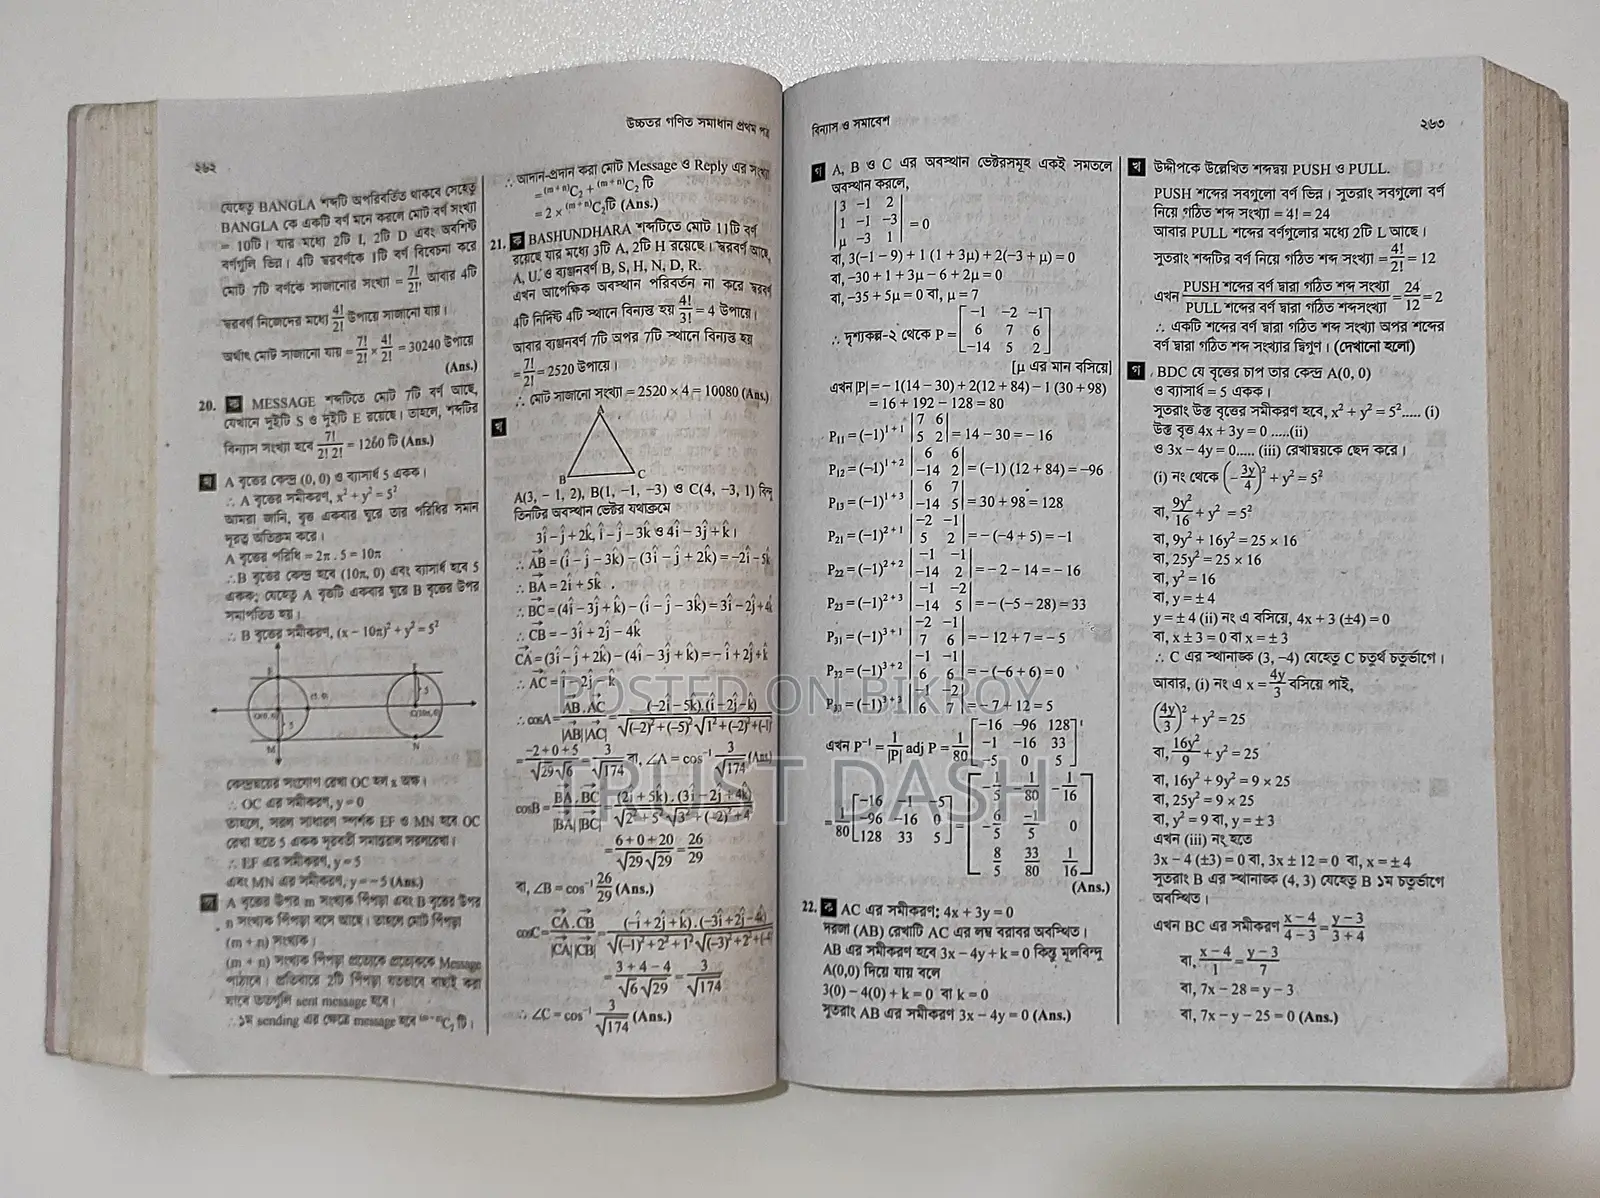 ২৬২
উচ্চতর গণিত সমাধান প্রথম পত্র
যেহেতু BANGLA শব্দটি অপরিবর্তিত থাকবে সেহেতু
BANGLA কে একটি বর্ণ মনে করলে মোট বর্ণ সংখ্যা
= 10টি। যার মধ্যে 2টি I, 2টি D এবং অবশিষ্ট
বর্ণগুলি ভিন্ন। 4টি স্বরবর্ণকে 1টি বর্ণ বিবেচনা করে
মোট 7টি বর্ণকে সাজানোর সংখ্যা = 7!/2!, আবার 4টি
স্বরবর্ণ নিজেদের মধ্যে 4!/2! উপায়ে সাজানো যায়।
অর্থাৎ মোট সাজানো যায় = 7!/2! × 4!/2! = 30240 উপায়ে
(Ans.)
20. ক MESSAGE শব্দটিতে মোট 7টি বর্ণ আছে,
যেখানে দুইটি S ও দুইটি E রয়েছে। তাহলে, শব্দটির
বিন্যাস সংখ্যা হবে 7!/2! 2! = 1260 টি (Ans.)
খ A বৃত্তের কেন্দ্র (0, 0) ও ব্যাসার্ধ 5 একক।
∴ A বৃত্তের সমীকরণ, x² + y² = 5²
আমরা জানি, বৃত্ত একবার ঘুরে তার পরিধির সমান
দূরত্ব অতিক্রম করে।
A বৃত্তের পরিধি = 2π . 5 = 10π
∴ B বৃত্তের কেন্দ্র হবে (10π, 0) এবং ব্যাসার্ধ হবে 5
একক; যেহেতু A বৃত্তটি একবার ঘুরে B বৃত্তের উপর
সমাপতিত হয়।
∴ B বৃত্তের সমীকরণ, (x − 10π)² + y² = 5²
E
5
(5, 0)
O(0, 0)
C(10π, 0)
5
M
N
কেন্দ্রদ্বয়ের সংযোগ রেখা OC হল x অক্ষ।
∴ OC এর সমীকরণ, y = 0
তাহলে, সরল সাধারণ স্পর্শক EF ও MN হবে OC
রেখা হতে 5 একক দূরবর্তী সমান্তরাল সরলরেখা।
∴ EF এর সমীকরণ, y = 5
এবং MN এর সমীকরণ, y = − 5 (Ans.)
গ A বৃত্তের উপর m সংখ্যক পিঁপড়া এবং B বৃত্তের উপর
n সংখ্যক পিঁপড়া বসে আছে। তাহলে মোট পিঁপড়া
(m + n) সংখ্যক।
(m + n) সংখ্যক পিঁপড়া প্রত্যেকে প্রত্যেককে Message
পাঠাবে। প্রতিবারে 2টি পিঁপড়া যতভাবে বাছাই করা
যাবে ততগুলি sent message হবে।
∴ ১ম sending এর ক্ষেত্রে message হবে ⁽ᵐ⁺ⁿ⁾C₂ টি।
∴ আদান-প্রদান করা মোট Message ও Reply এর সংখ্যা
= ⁽ᵐ⁺ⁿ⁾C₂ + ⁽ᵐ⁺ⁿ⁾C₂ টি
= 2 × ⁽ᵐ⁺ⁿ⁾C₂টি (Ans.)
21. ক BASHUNDHARA শব্দটিতে মোট 11টি বর্ণ
রয়েছে যার মধ্যে 3টি A, 2টি H রয়েছে। স্বরবর্ণ আছে,
A, U. ও ব্যঞ্জনবর্ণ B, S, H, N, D, R.
এখন আপেক্ষিক অবস্থান পরিবর্তন না করে স্বরবর্ণ
4টি নির্দিষ্ট 4টি স্থানে বিন্যস্ত হয় 4!/3! = 4 উপায়ে।
আবার ব্যঞ্জনবর্ণ 7টি অপর 7টি স্থানে বিন্যস্ত হয়
= 7!/2! = 2520 উপায়ে।
∴ মোট সাজানো সংখ্যা = 2520 × 4 = 10080 (Ans.)
খ
A
B
C
A(3, − 1, 2), B(1, −1, −3) ও C(4, −3, 1) বিন্দু
তিনটির অবস্থান ভেক্টর যথাক্রমে
3î − ĵ + 2k̂, î − ĵ − 3k̂ ও 4î − 3ĵ + k̂।
∴ AB⃗ = (î − ĵ − 3k̂) − (3î − ĵ + 2k̂) = −2î − 5k̂
∴ BA⃗ = 2î + 5k̂ .
∴ BC⃗ = (4î − 3ĵ + k̂) − (î − ĵ − 3k̂) = 3î − 2ĵ + 4k̂
∴ CB⃗ = − 3î + 2ĵ − 4k̂
CA⃗ = (3î − ĵ + 2k̂) − (4î − 3ĵ + k̂) = − î + 2ĵ + k̂
∴ AC⃗ = î − 2ĵ − k̂
∴ cosA = AB⃗ . AC⃗/|AB⃗| |AC⃗| = (−2î − 5k̂).(î − 2ĵ − k̂)/√(−2)² + (−5)² √1² + (−2)² + (−1)²
= −2 + 0 + 5/√29 √6 = 3/√174 বা, ∠A = cos⁻¹ 3/√174 (Ans.)
cosB = BA⃗ . BC⃗/|BA⃗| |BC⃗| = (2î + 5k̂) . (3î − 2ĵ + 4k̂)/√2² + 5² √3² + (−2)² + 4²
= 6 + 0 + 20/√29 √29 = 26/29
বা, ∠B = cos⁻¹ 26/29 (Ans.)
cosC = CA⃗ . CB⃗/|CA⃗| |CB⃗| = (−î + 2ĵ + k̂) . (−3î + 2ĵ − 4k̂)/√(−1)² + 2² + 1² √(−3)² + 2² + (−4)²
= 3 + 4 − 4/√6 √29 = 3/√174
∴ ∠C = cos⁻¹ 3/√174 (Ans.)
বিন্যাস ও সমাবেশ
২৬৩
গ A, B ও C এর অবস্থান ভেক্টরসমূহ একই সমতলে
অবস্থান করলে,
|3 −1 2|
|1 −1 −3| = 0
|μ −3 1|
বা, 3(−1 − 9) + 1 (1 + 3μ) + 2(−3 + μ) = 0
বা, −30 + 1 + 3μ − 6 + 2μ = 0
বা, −35 + 5μ = 0 বা, μ = 7
[−1 −2 −1]
∴ দৃশ্যকল্প-২ থেকে P = [6 7 6]
[−14 5 2]
[μ এর মান বসিয়ে]
এখন |P| = − 1(14 − 30) + 2(12 + 84) − 1 (30 + 98)
= 16 + 192 − 128 = 80
P₁₁ = (−1)¹⁺¹ |7 6; 5 2| = 14 − 30 = − 16
P₁₂ = (−1)¹⁺² |6 6; −14 2| = (−1) (12 + 84) = −96
P₁₃ = (−1)¹⁺³ |6 7; −14 5| = 30 + 98 = 128
P₂₁ = (−1)²⁺¹ |−2 −1; 5 2| = − (−4 + 5) = −1
P₂₂ = (−1)²⁺² |−1 −1; −14 2| = − 2 − 14 = − 16
P₂₃ = (−1)²⁺³ |−1 −2; −14 5| = − (−5 − 28) = 33
P₃₁ = (−1)³⁺¹ |−2 −1; 7 6| = − 12 + 7 = − 5
P₃₂ = (−1)³⁺² |−1 −1; 6 6| = − (−6 + 6) = 0
P₃₃ = (−1)³⁺³ |−1 −2; 6 7| = − 7 + 12 = 5
এখন P⁻¹ = 1/|P| adj P = 1/80 [−16 −96 128; −1 −16 33; −5 0 5]ᵗ
= 1/80 [−16 −1 −5; −96 −16 0; 128 33 5] = [−1/5 −1/80 −1/16; −6/5 −1/5 0; 8/5 33/80 1/16]
(Ans.)
22. ক AC এর সমীকরণ: 4x + 3y = 0
দরজা (AB) রেখাটি AC এর লম্ব বরাবর অবস্থিত।
AB এর সমীকরণ হবে 3x − 4y + k = 0 কিন্তু মূলবিন্দু
A(0,0) দিয়ে যায় বলে
3(0) − 4(0) + k = 0 বা k = 0
সুতরাং AB এর সমীকরণ 3x − 4y = 0 (Ans.)
খ উদ্দীপকে উল্লেখিত শব্দদ্বয় PUSH ও PULL.
PUSH শব্দের সবগুলো বর্ণ ভিন্ন। সুতরাং সবগুলো বর্ণ
নিয়ে গঠিত শব্দ সংখ্যা = 4! = 24
আবার PULL শব্দের বর্ণগুলোর মধ্যে 2টি L আছে।
সুতরাং শব্দটির বর্ণ নিয়ে গঠিত শব্দ সংখ্যা = 4!/2! = 12
এখন PUSH শব্দের বর্ণ দ্বারা গঠিত শব্দ সংখ্যা/PULL শব্দের বর্ণ দ্বারা গঠিত শব্দসংখ্যা = 24/12 = 2
∴ একটি শব্দের বর্ণ দ্বারা গঠিত শব্দ সংখ্যা অপর শব্দের
বর্ণ দ্বারা গঠিত শব্দ সংখ্যার দ্বিগুণ। (দেখানো হলো)
গ . BDC যে বৃত্তের চাপ তার কেন্দ্র A(0, 0)
ও ব্যাসার্ধ = 5 একক।
সুতরাং উক্ত বৃত্তের সমীকরণ হবে, x² + y² = 5²..... (i)
উক্ত বৃত্ত 4x + 3y = 0 .....(ii)
ও 3x − 4y = 0..... (iii) রেখাদ্বয়কে ছেদ করে।
(i) নং থেকে (− 3y/4)² + y² = 5²
বা, 9y²/16 + y² = 5²
বা, 9y² + 16y² = 25 × 16
বা, 25y² = 25 × 16
বা, y² = 16
বা, y = ± 4
y = ± 4 (ii) নং এ বসিয়ে, 4x + 3 (±4) = 0
বা, x ± 3 = 0 বা x = ± 3
∴ C এর স্থানাঙ্ক (3, −4) যেহেতু C চতুর্থ চতুর্ভাগে।
আবার, (i) নং এ x = 4y/3 বসিয়ে পাই,
(4y/3)² + y² = 25
বা, 16y²/9 + y² = 25
বা, 16y² + 9y² = 9 × 25
বা, 25y² = 9 × 25
বা, y² = 9 বা, y = ± 3
এখন (iii) নং হতে
3x − 4 (±3) = 0 বা, 3x ± 12 = 0 বা, x = ± 4
সুতরাং B এর স্থানাঙ্ক (4, 3) যেহেতু B ১ম চতুর্ভাগে
অবস্থিত।
এখন BC এর সমীকরণ x − 4/4 − 3 = y − 3/3 + 4
বা, x − 4/1 = y − 3/7
বা, 7x − 28 = y − 3
বা, 7x − y − 25 = 0 (Ans.)
POSTED ON BIKROY
TRUST DASH